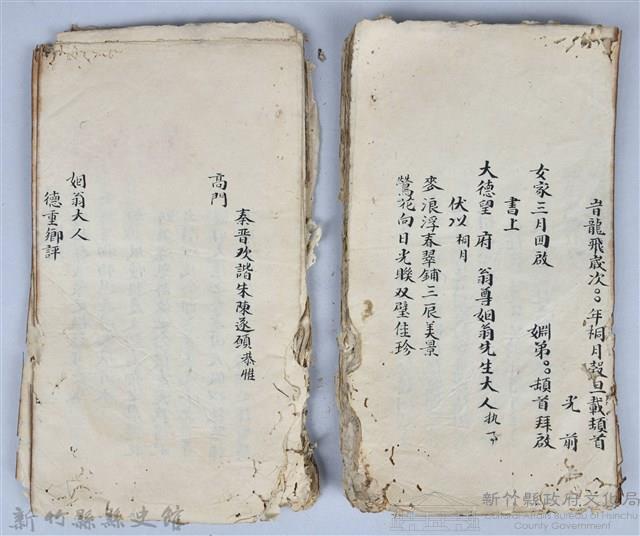 旹龍飛歲次○○年桐月穀旦載頡首
光前
女家三月回啟 姻弟○○頡首拜啟
書上
大德望府翁尊姻翁先生大人執事
伏以桐月
麥浪浮春翠鋪三辰美景
鶯花向日光睽双璧佳珍
秦晉欢諧朱陳遂碩恭惟
高門
姻翁大人
德重鄉評
新竹縣縣史館
新竹縣政府文化局
Cultural Affairs Bureau of Hsinchu
County Government